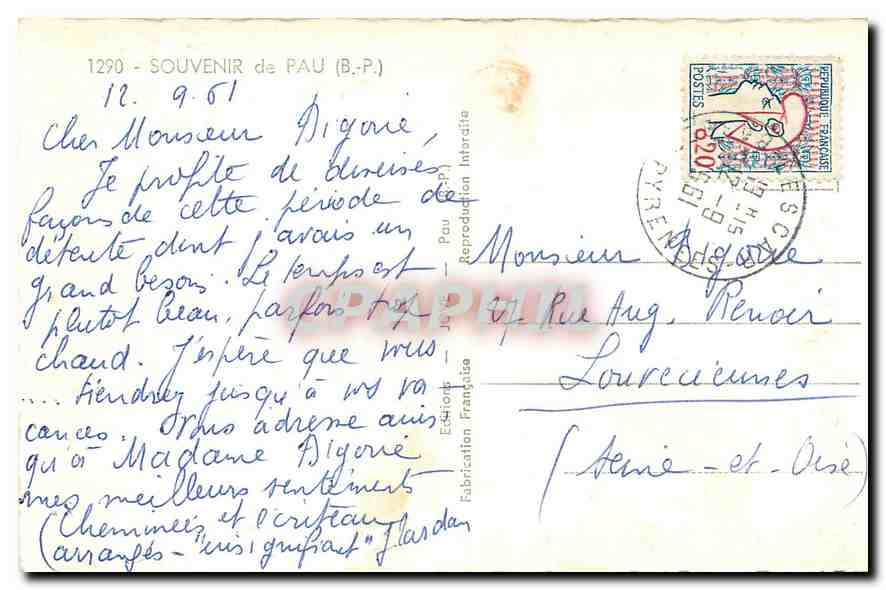 1290 - SOUVENIR de PAU (B.-P.)
12. 9.61
Cher Monsieur Digorie,
Je profite de diverses
façons de cette période de
détente dont j'avais un
grand besoin. Le temps est
plutot beau, parfois trop
chaud. J'espère que vous
.... tiendrez jusqu'à vos va-
cances. Vous adresse ainsi
qu'à Madame Digorie
mes meilleurs sentiments
(Cheminées et écriteau
(arrangés - "insignifiant"
Editions - Pau (B.-P.)
Fabrication Française - Reproduction Interdite
REPUBLIQUE FRANÇAISE
POSTES
0,20
LESCAR
BSES PYRENEES
15 H
-9
1961
Monsieur Digorie
27 Rue Aug. Renoir
Louveciennes
(Seine-et-Oise)
CPAPHIL